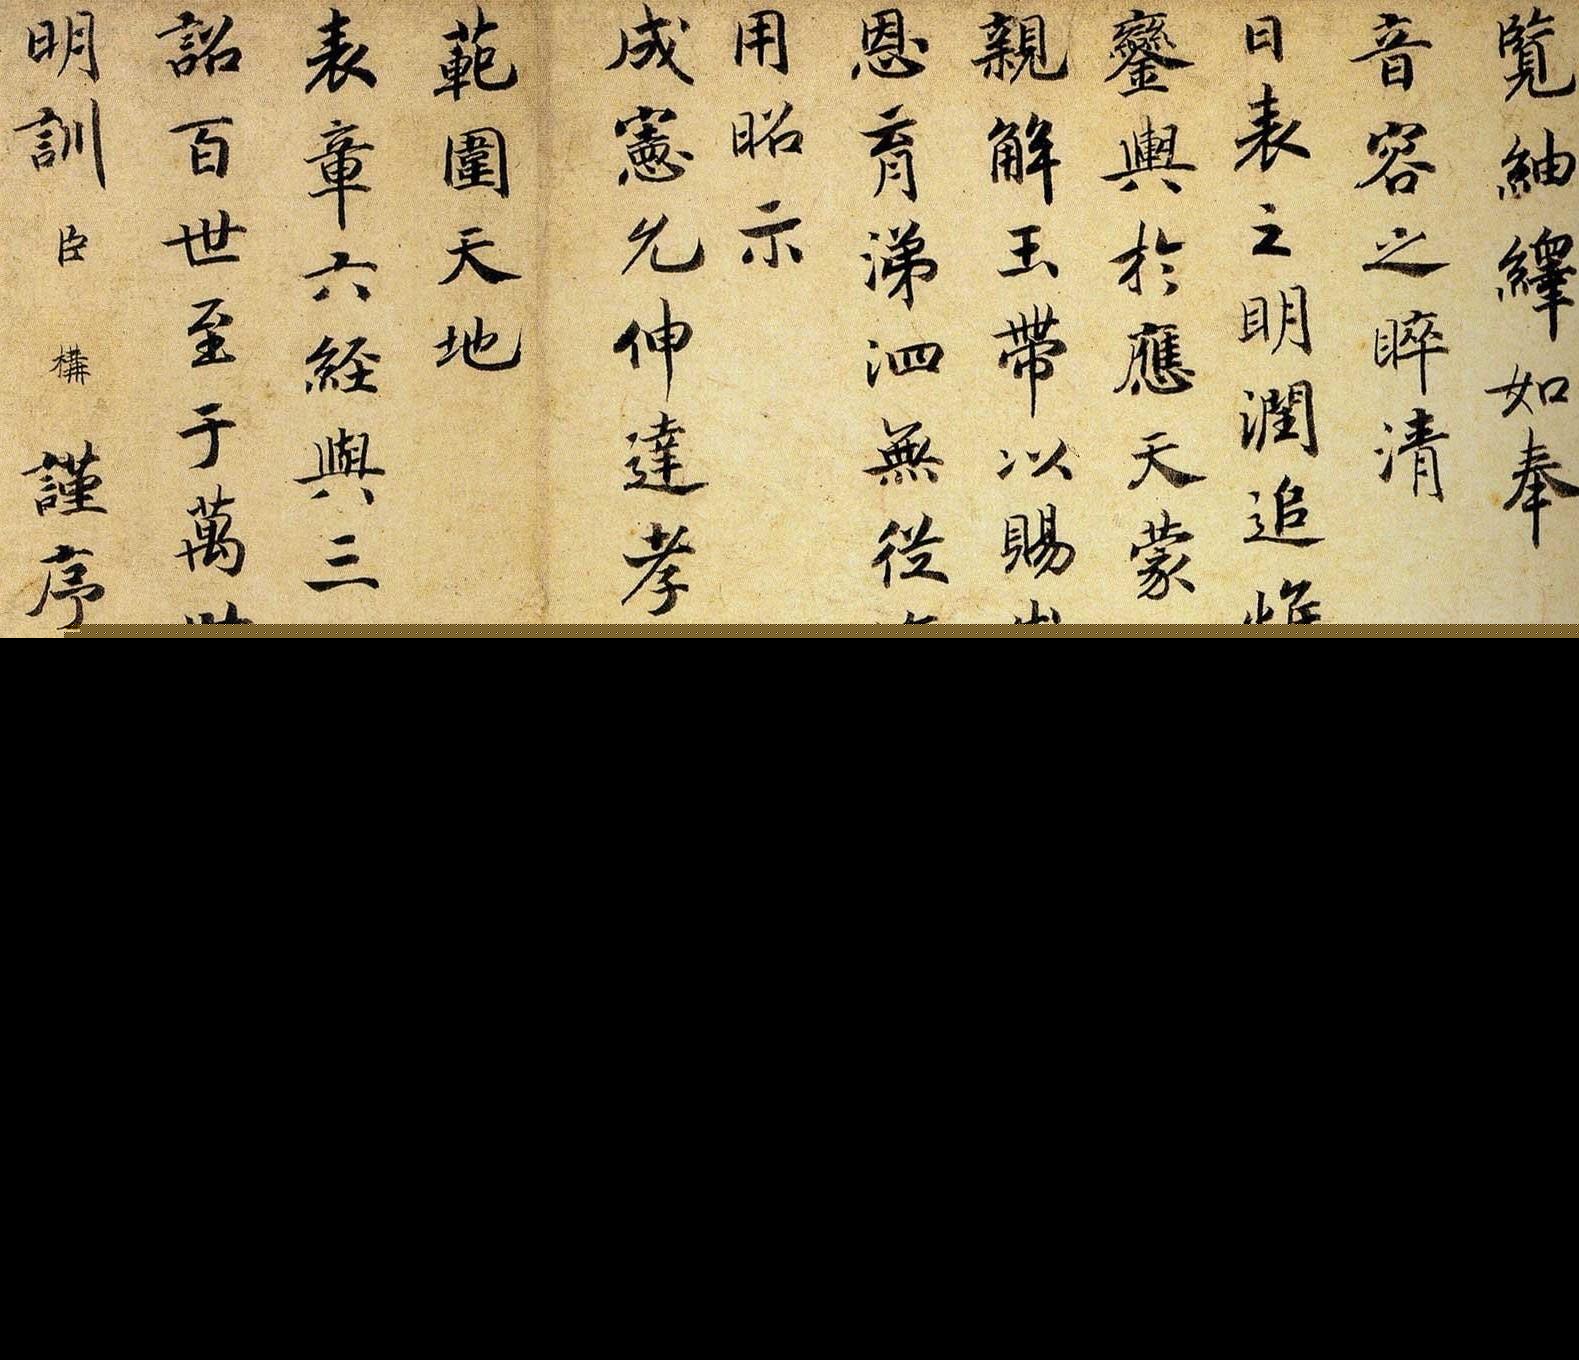 覽紬繹如奉
音容之睟清
日表之明潤追
鑾輿於應天蒙
親解玉帶以賜
恩育涕泗無從
用昭示
成憲允伸達孝
範圍天地
表章六經與三
詔百世至于萬
明訓臣構謹序